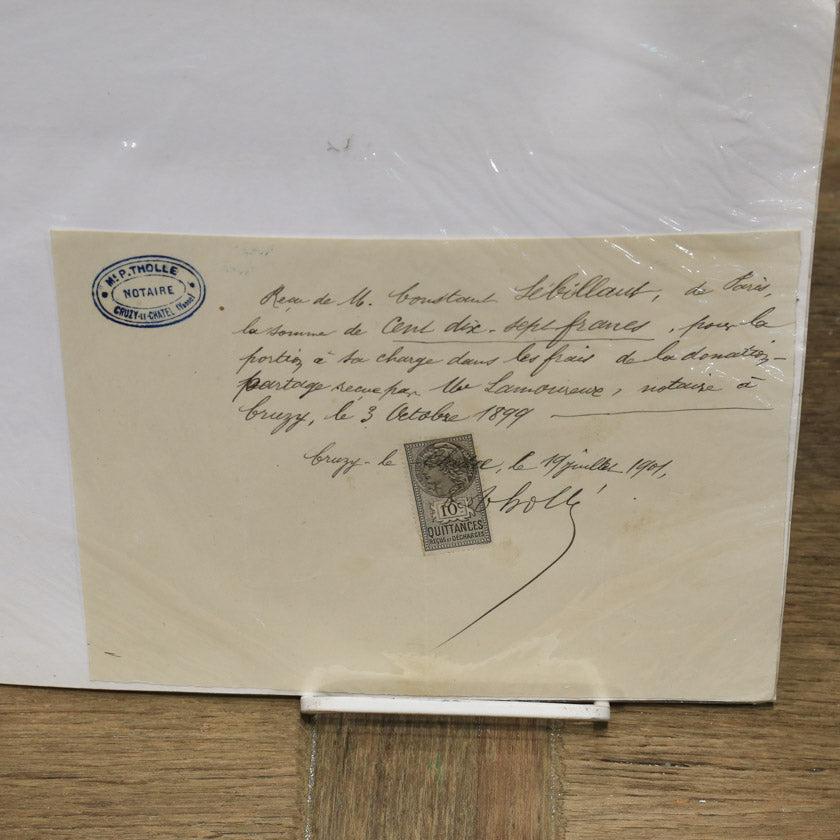 Mᵉ P. THOLLE
NOTAIRE
CRUZY-LE-CHATEL (Yonne)
Reçu de M. Constant Sebillaut, de Paris,
la somme de Cent dix-sept francs, pour la
portion à sa charge dans les frais de la donation-
partage reçue par Me Lamoureux, notaire à
Cruzy, le 3 Octobre 1899
Cruzy-le-, le 19 juillet 1901,
Tholle
10c
QUITTANCES
REÇUS ET DÉCHARGES